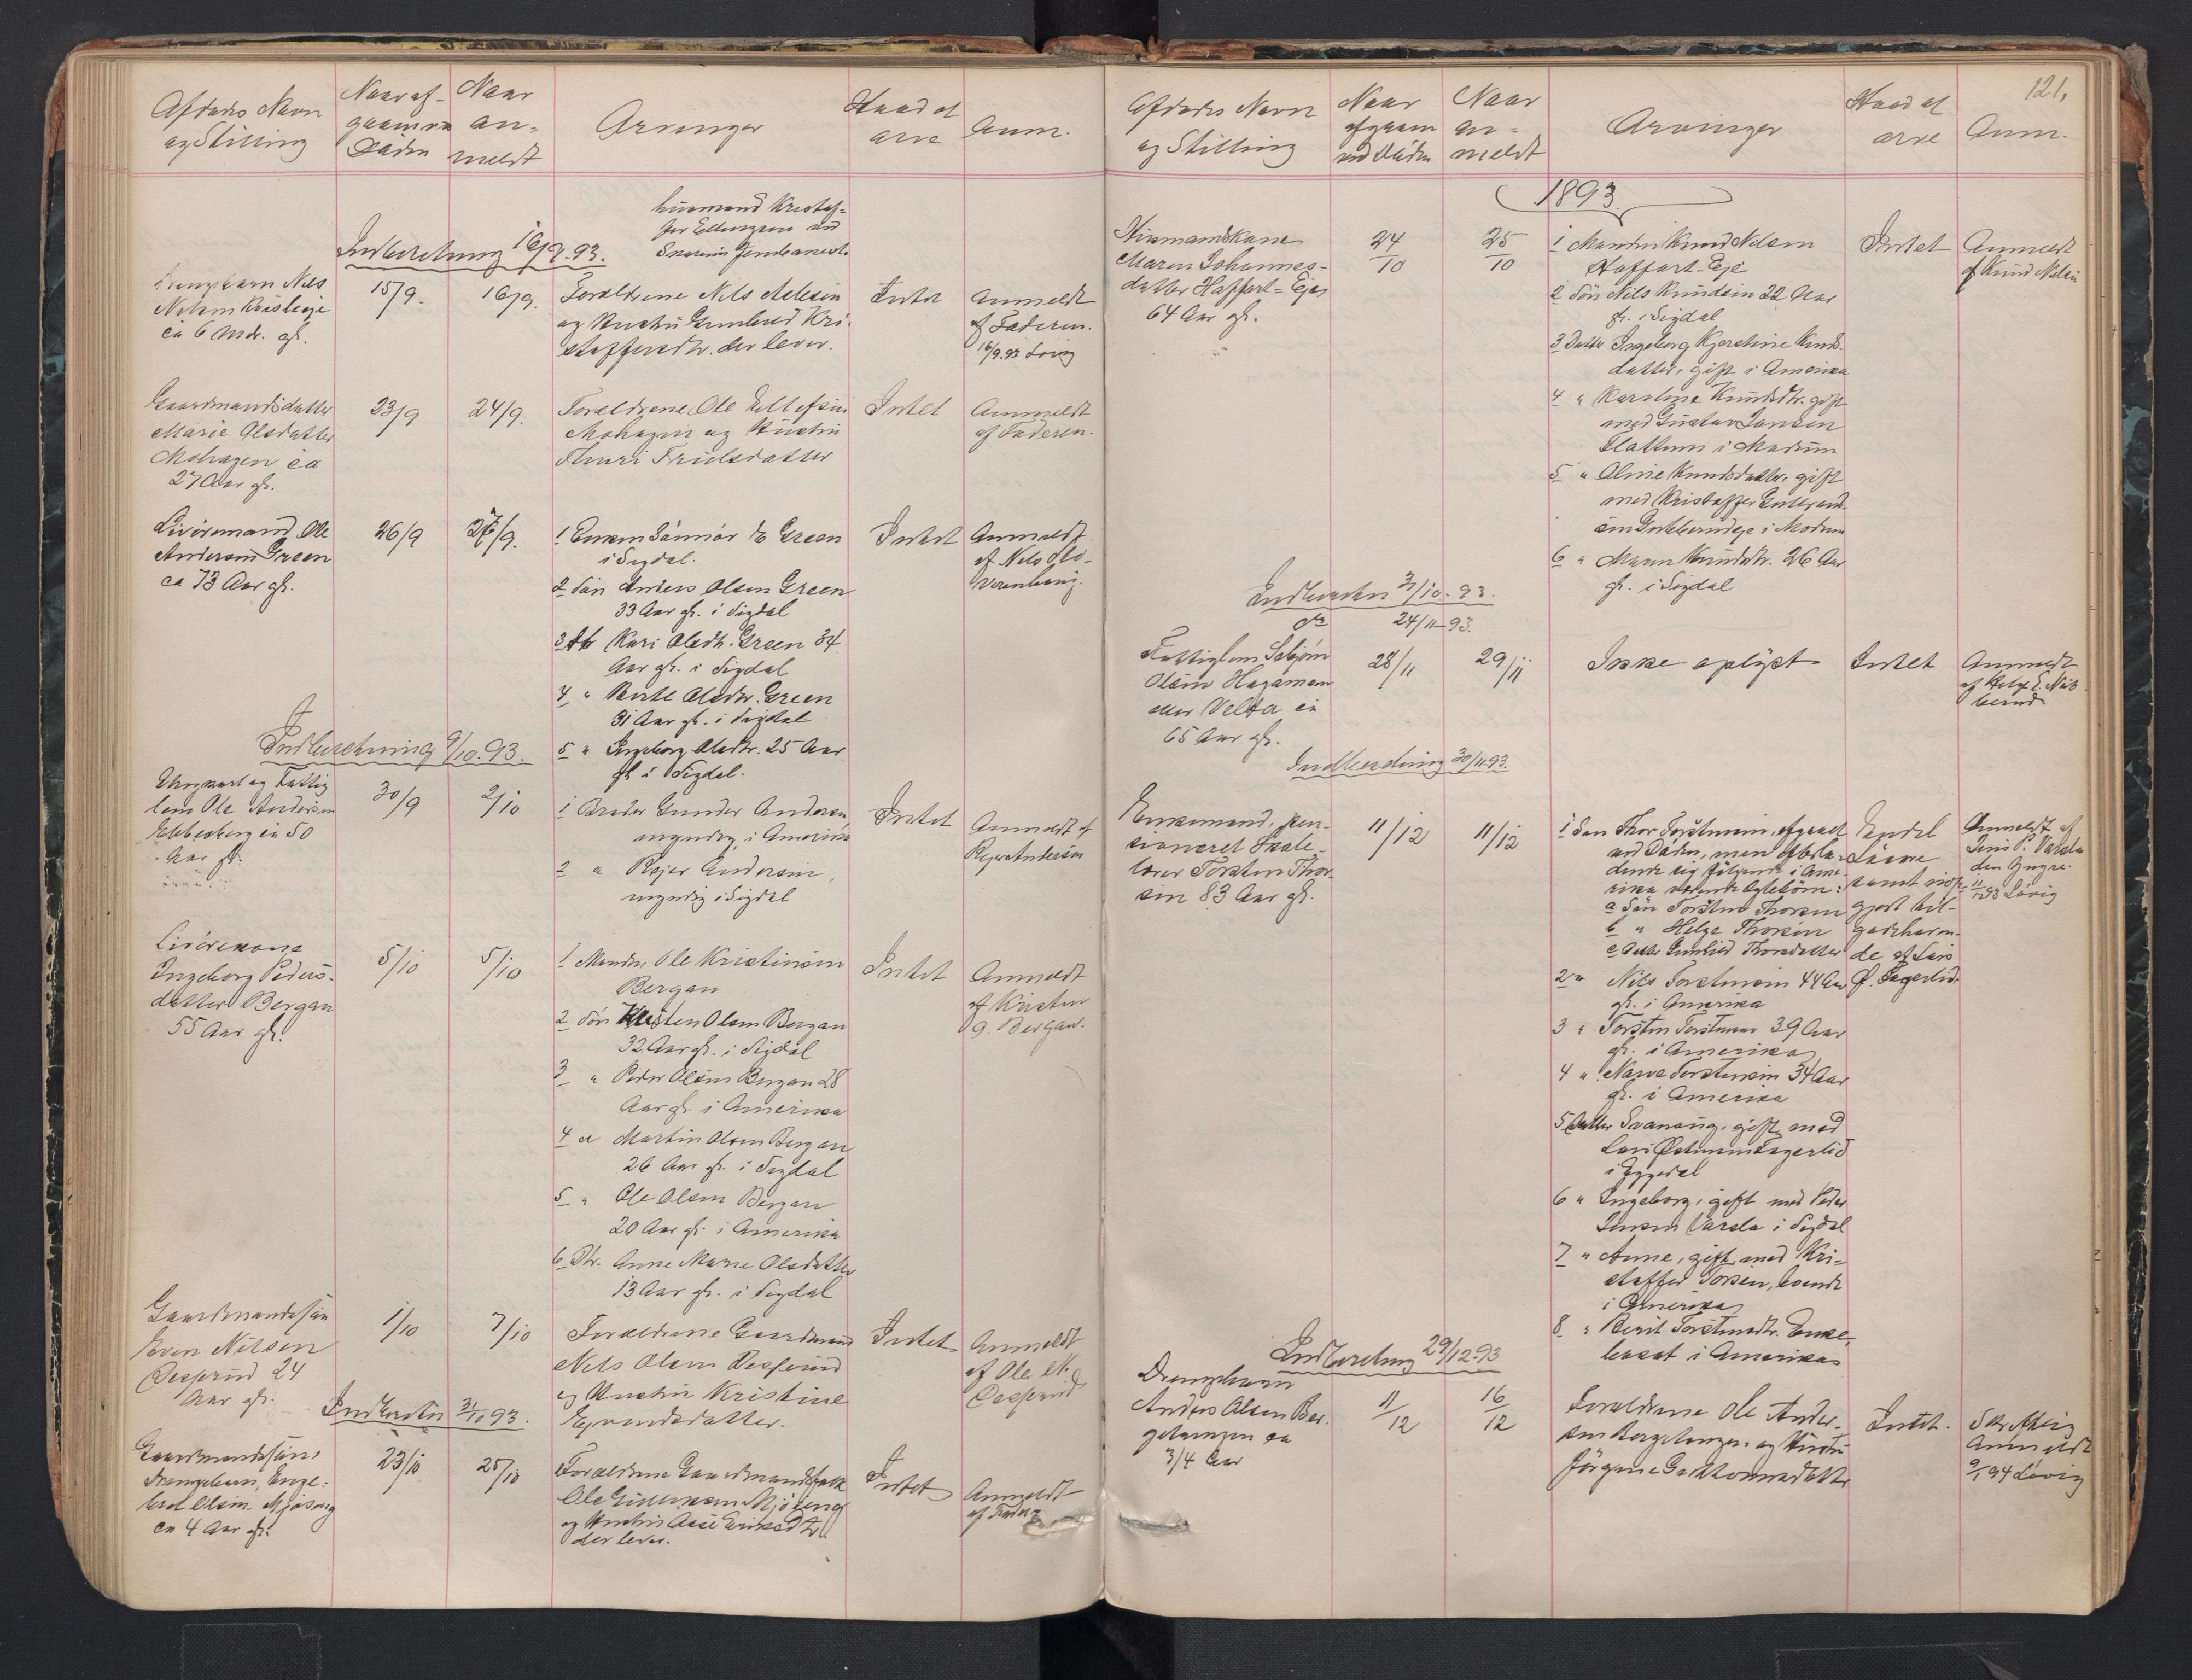 Afdødes Navn
og Stilling
Naar af-
gaaen ved
Døden
Naar
an-
meldt
Arvinger
Hvad at
arve
Anm.
husmand Kristof-
fer Ellingsen ved
Indberetning 16/9.93.
Drengebarn Nils
Nilsen
ca 6 Mdr. gl.
15/9.
16/9.
Forældrene Nils Nilsen
og Hustru Gunhild Kri-
stoffersdtr. der lever.
Intet
Anmeldt
af Faderen.
16/9.93 Lövig
Gaardmandsdatter
Marie Olsdatter
Mohagen ca
27 Aar gl.
23/9
24/9.
Forældrene Ole Ellefsen
Mohagen og Hustru
Thuri Trulsdatter
Intet
Anmeldt
af Faderen.
Livöremand Ole
Andersen Green
ca 73 Aar gl.
26/9
27/9.
1 Enken Sönnöv Green
i Sigdal.
2 Sön Anders Olsen Green
33 Aar gl. i Sigdal
3 Dtr Kari Olsdtr. Green 34
Aar gl. i Sigdal
4 " Berte Olsdtr. Green
31 Aar gl. i Sigdal
5 " Ingeborg Olsdtr. 25 Aar
gl i Sigdal.
Intet
Anmeldt
af Nils
Indberetning 9/10.93.
Ungkarl og Fattig
lem Ole Andersen
ca 50
Aar gl.
30/9
2/10
1 Broder Gunder Andersen,
myndig, i Amerika
2 " Rejer Andersen,
myndig i Sigdal
Intet
Anmeldt af
Rejer Andersen
Livörekone
Ingeborg Peders-
datter Bergan
55 Aar gl.
5/10
5/10
1 Manden Ole Kristensen
Bergan
2 Sön Kristen Olsen Bergan
32 Aar gl. i Sigdal
3 " Peder Olsen Bergan 28
Aar gl. i Amerika
4 " Martin Olsen Bergan
26 Aar gl. i Sigdal
5 " Ole Olsen Bergan
20 Aar gl. i Amerika
6 Dtr. Anne Marie Olsdatter
13 Aar gl. i Sigdal
Intet
Anmeldt
af Kristen
O. Bergan.
Gaardmandssön
Even Nilsen
24
Aar gl.
1/10
7/10
Forældrene Gaardmand
Nils Olsen
og Hustru Kristine
Intet
Anmeldt
af Ole N.
Indberetn 31/10 93.
Gaardmandssön,
Drengebarn, Enge-
bret Olsen Mjöseng
ca 4 Aar gl.
23/10
25/10
Forældrene Gaardmandsfolk
Ole Mjöseng
og Hustru Aase Eriksdtr
der lever.
Intet
Anmeldt
af Faderen
121,
Afdødes Navn
og Stilling
Naar
afgaaen
ved Døden
Naar
an-
meldt
Arvinger
Hvad at
arve
Anm.
1893.
Husmandskone
Maren Johannes-
datter Haffart-Eje
64 Aar gl.
24/10
25/10
1 Manden Knud Nilsen
Haffart-Eje
2 Sön Nils Knudsen 22 Aar
gl. i Sigdal
3 Datter Ingeborg Kjerstine Knuds-
datter, gift i Amerika
4 " Karoline Knudsdtr. gift
med Gustav Jansen
Slattum i Modum
5 " Oline Knudsdatter, gift
med Kristoffer Gulbrand-
sen i Modum
6 " Maren Knudsdtr. 26 Aar
gl. i Sigdal
Intet
Anmeldt
af Knud Nilsen
Indberetn 31/10.93.
do 24/11-93.
Fattiglem
Olsen Hagamoen
eller Velta ca
65 Aar gl.
28/11
29/11
Ikke oplyst
Intet
Anmeldt
af Helge E.
Indberetning 30/11.93.
Enkemand, pen-
sioneret Skole-
lærer Torsten Thor-
sen 83 Aar gl.
11/12
11/12
1 Sön Thor Torstensen, afgaaet
ved Døden, men efterla-
dende sig følgende i Ame-
rika værende Ægtebörn:
a Sön Torsten Thorsen
b " Helge Thorsen
c Datter Gunhild Thorsdatter
2 " Nils Torstensen 44 Aar
gl. i Amerika
3 " Torsten Torstensen 39 Aar
gl. i Amerika
4 " Narve Torstensen 34 Aar
gl. i Amerika
5 Datter Svanaug, gift med
Lars Östensen Fagerlid
i Eggedal
6 " Ingeborg, gift med Peder
Jensen Varlo i Sigdal
7 " Anne, gift med Kri-
stoffer Torsen, boende
i Amerika
8 " Berit Torstensdtr. Enke,
bosat i Amerika
Endel
Lösøre
samt
gjort til-
godehaven-
de af Lars
Ø. Fagerlid.
Anmeldt af
Jens P. Varlo
den yngre.
11/12 93 Lövig
Indberetning 29/12.93
Drengebarn
Anders Olsen Ber-
getangen ca
3/4 Aar
11/12
16/12
Forældrene Ole Ander-
sen Bergetangen og Hustru
Jörgine
Intet.
Anmeldt
9/1 94 Lövig